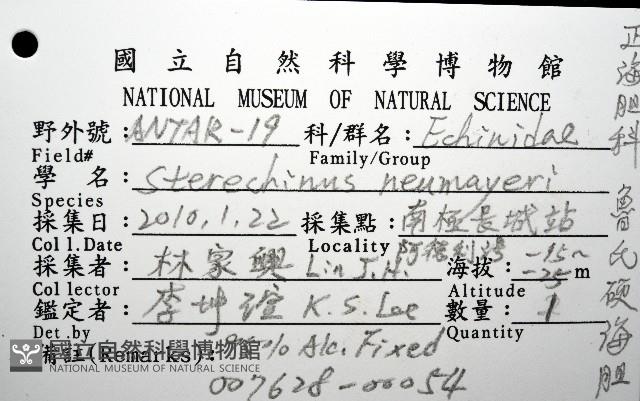 國立自然科學博物館
NATIONAL MUSEUM OF NATURAL SCIENCE
野外號：ANTAR-19 科/群名：Echinidae
Field# Family/Group
學 名：Sterechinus neumayeri
Species
採集日：2010.1.22 採集點：南極長城站
Coll.Date Locality 阿德利灣
採集者：林家興 Lin J.H. 海拔：-15~-25 m
Collector Altitude
鑑定者：李坤瑄 K.S. Lee 數量：1
Det.by Quantity
備註(Remarks)：95% Alc. Fixed
007628-00054
正海胆科 魯氏硕海胆
國立自然科學博物館
NATIONAL MUSEUM OF NATURAL SCIENCE